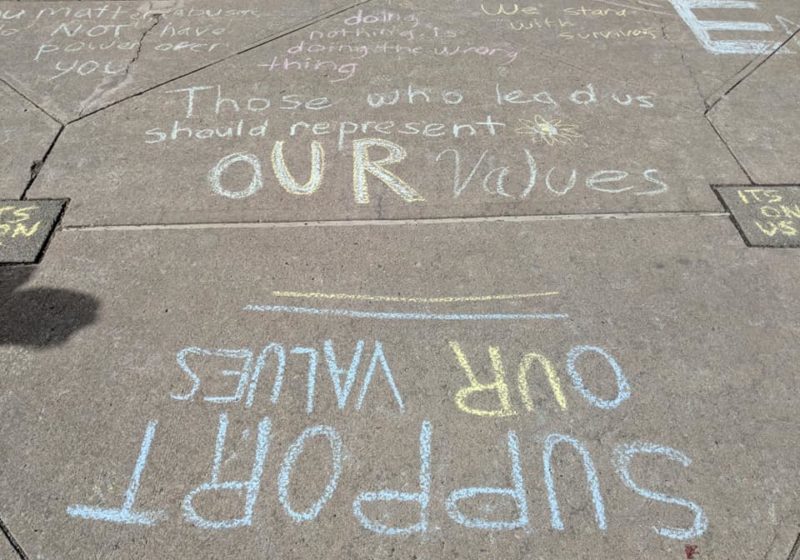 matter
NOT have
power over
you
doing
nothing is
doing the wrong
thing
We stand
with
survivors
Those who lead us
should represent
OUR Values
ITS
ON
US
SUPPORT
OUR VALUES